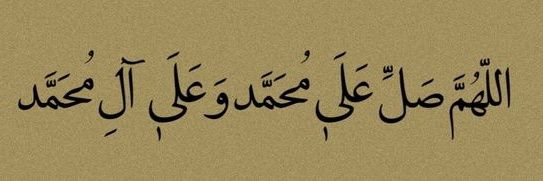 اللّهُمَّ صَلِّ عَلَی مُحَمَّد وَ عَلَی آلِ مُحَمَّد